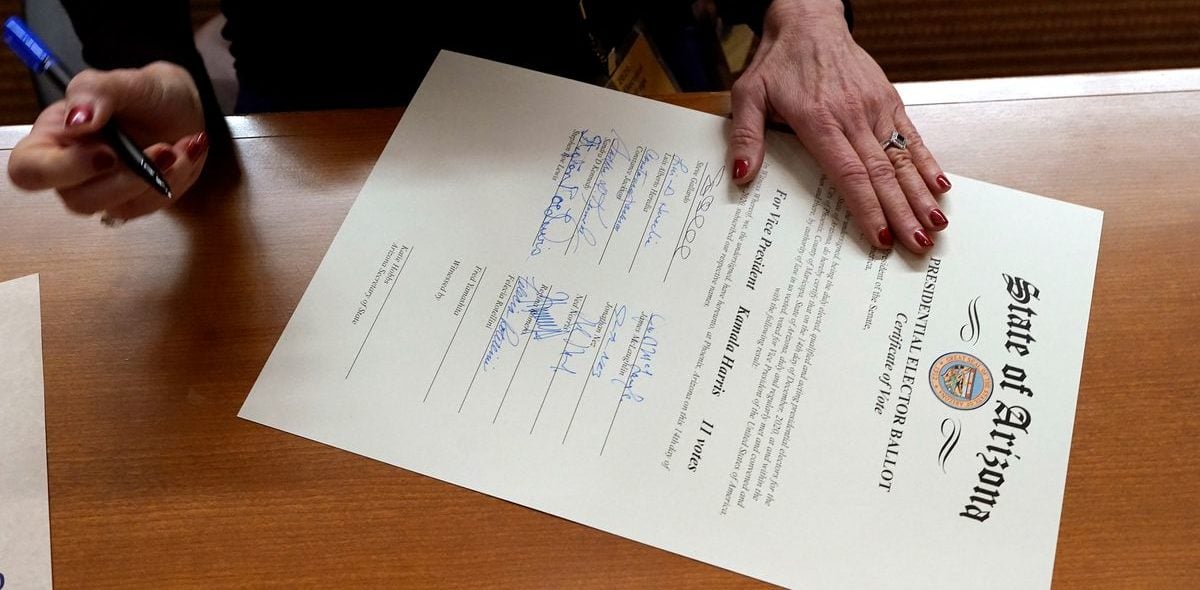 State of Arizona
PRESIDENTIAL ELECTOR BALLOT
Certificate of Vote
President of the Senate,
being the duly elected, qualified and acting presidential electors for the
County of Maricopa, State of Arizona, duly and regularly met and convened and
do hereby certify that on the 14th day of December, 2020, at and within the
by authority of law in us vested, voted for Vice President of the United States of America,
with the following result:
For Vice President Kamala Harris 11 votes
In Witness Whereof, we, the undersigned, have hereunto, at Phoenix, Arizona on this 14th day of
2020, subscribed our respective names.
Steve Gallardo
Luis Alberto Heredia
James McLaughlin
Constance Jackson
Jonathan Nez
Sandra D. Kennedy
Ned Norris
Stephen Roe Lewis
Felecia Rotellini
Fred Yamashita
Witnessed by
Katie Hobbs
Arizona Secretary of State